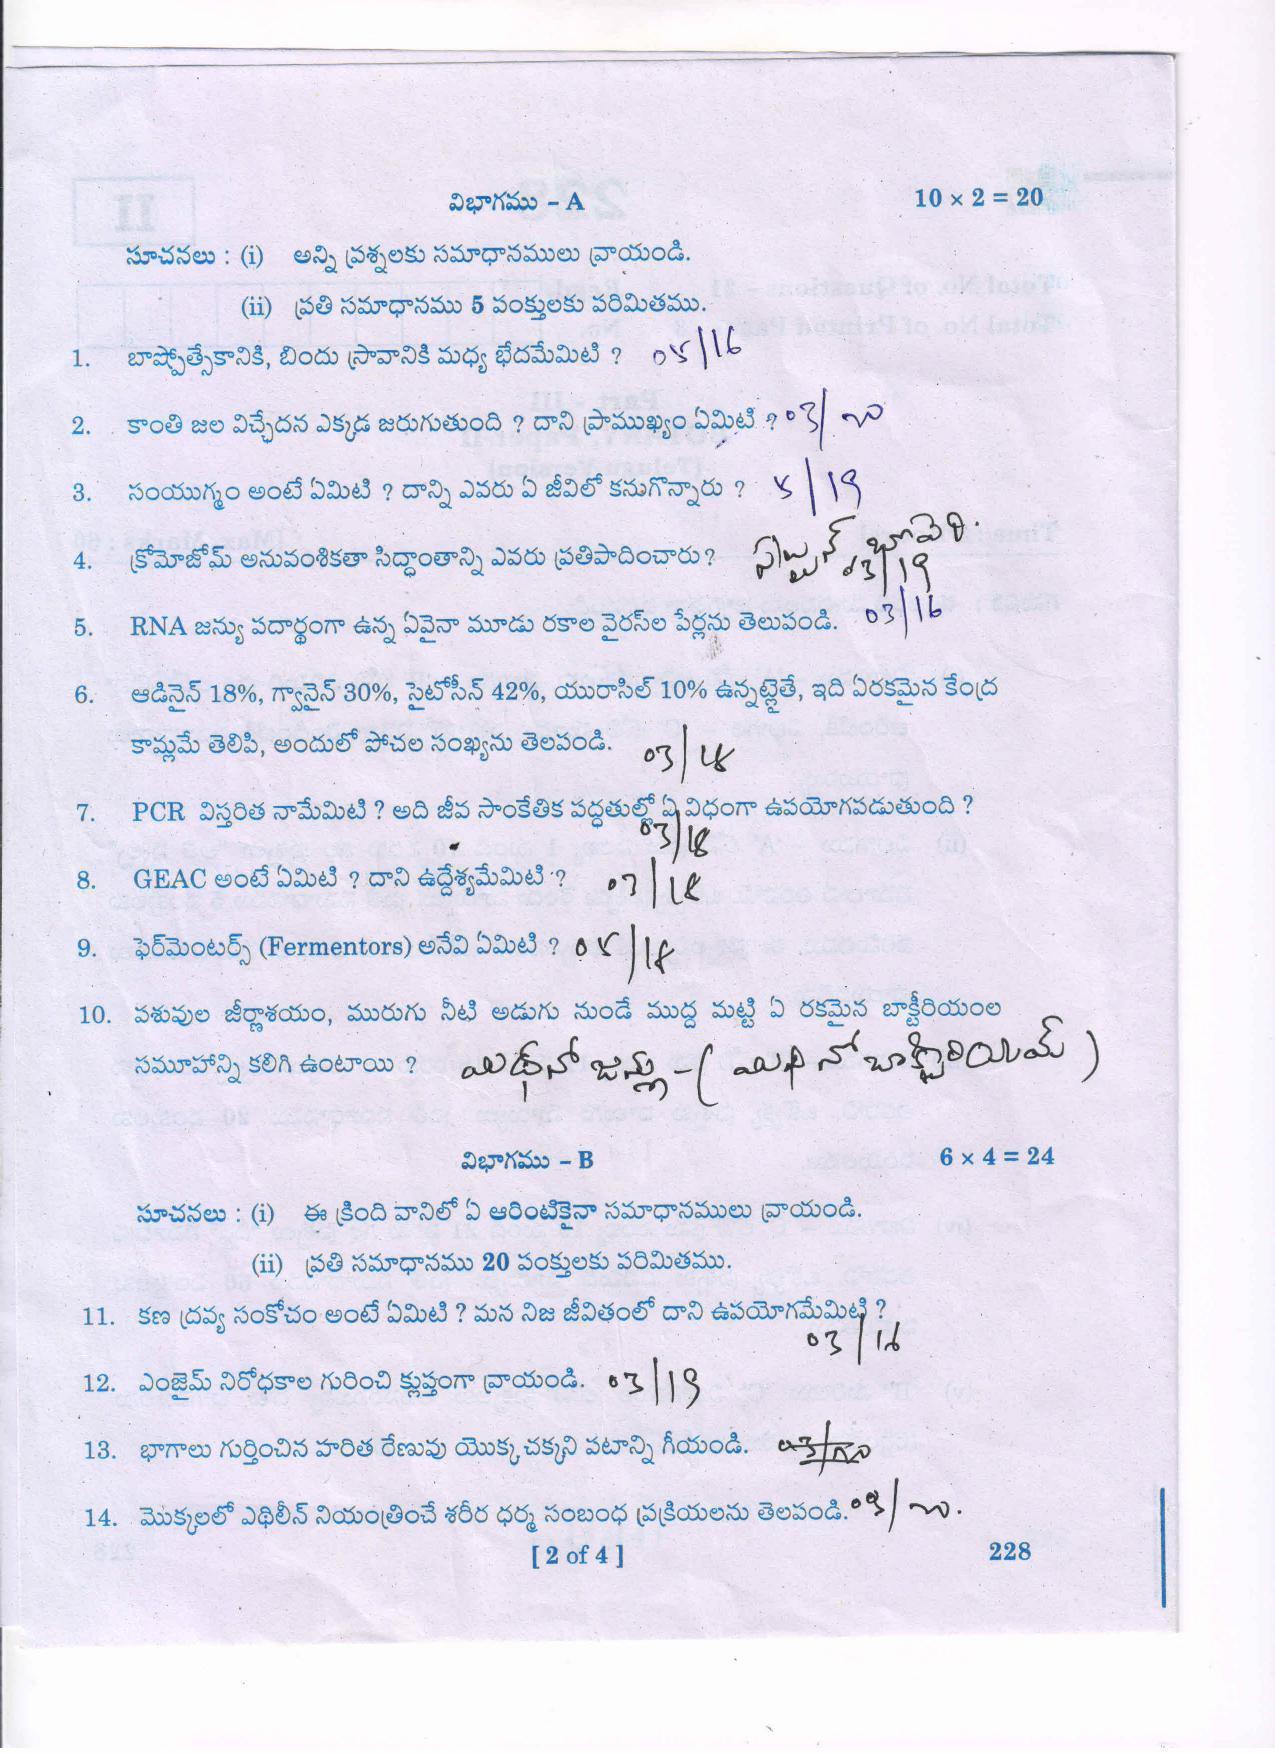 విభాగము - A 10 × 2 = 20
సూచనలు : (i) అన్ని ప్రశ్నలకు సమాధానములు వ్రాయండి.
(ii) ప్రతి సమాధానము 5 పంక్తులకు పరిమితము.
1. బాష్పోత్సేకానికి, బిందు స్రావానికి మధ్య భేదమేమిటి ? 05/16
2. కాంతి జల విచ్ఛేదన ఎక్కడ జరుగుతుంది ? దాని ప్రాముఖ్యం ఏమిటి ? 03/20
3. సంయుగ్మం అంటే ఏమిటి ? దాన్ని ఎవరు ఏ జీవిలో కనుగొన్నారు ? 5/19
4. క్రోమోజోమ్ అనువంశికతా సిద్ధాంతాన్ని ఎవరు ప్రతిపాదించారు ? 03/19
5. RNA జన్యు పదార్థంగా ఉన్న ఏవైనా మూడు రకాల వైరస్‌ల పేర్లను తెలుపండి. 03/16
6. ఆడినైన్ 18%, గ్వానైన్ 30%, సైటోసీన్ 42%, యురాసిల్ 10% ఉన్నట్లైతే, ఇది ఏరకమైన కేంద్ర
కామ్లమే తెలిపి, అందులో పోచల సంఖ్యను తెలపండి. 03/18
7. PCR విస్తరిత నామేమిటి ? అది జీవ సాంకేతిక పద్ధతుల్లో ఏ విధంగా ఉపయోగపడుతుంది ?
03/18
8. GEAC అంటే ఏమిటి ? దాని ఉద్దేశ్యమేమిటి ? 03/18
9. ఫెర్‌మెంటర్స్ (Fermentors) అనేవి ఏమిటి ? 05/18
10. పశువుల జీర్ణాశయం, మురుగు నీటి అడుగు నుండే ముద్ద మట్టి ఏ రకమైన బాక్టీరియంల
సమూహాన్ని కలిగి ఉంటాయి ? మిథనోజన్లు - ( మిథనోబాక్టీరియమ్ )
విభాగము - B 6 × 4 = 24
సూచనలు : (i) ఈ క్రింది వానిలో ఏ ఆరింటికైనా సమాధానములు వ్రాయండి.
(ii) ప్రతి సమాధానము 20 పంక్తులకు పరిమితము.
11. కణ ద్రవ్య సంకోచం అంటే ఏమిటి ? మన నిజ జీవితంలో దాని ఉపయోగమేమిటి ?
03/16
12. ఎంజైమ్ నిరోధకాల గురించి క్లుప్తంగా వ్రాయండి. 03/19
13. భాగాలు గుర్తించిన హరిత రేణువు యొక్క చక్కని పటాన్ని గీయండి.
14. మొక్కలలో ఎథిలీన్ నియంత్రించే శరీర ధర్మ సంబంధ ప్రక్రియలను తెలపండి. 03/20.
[ 2 of 4 ] 228